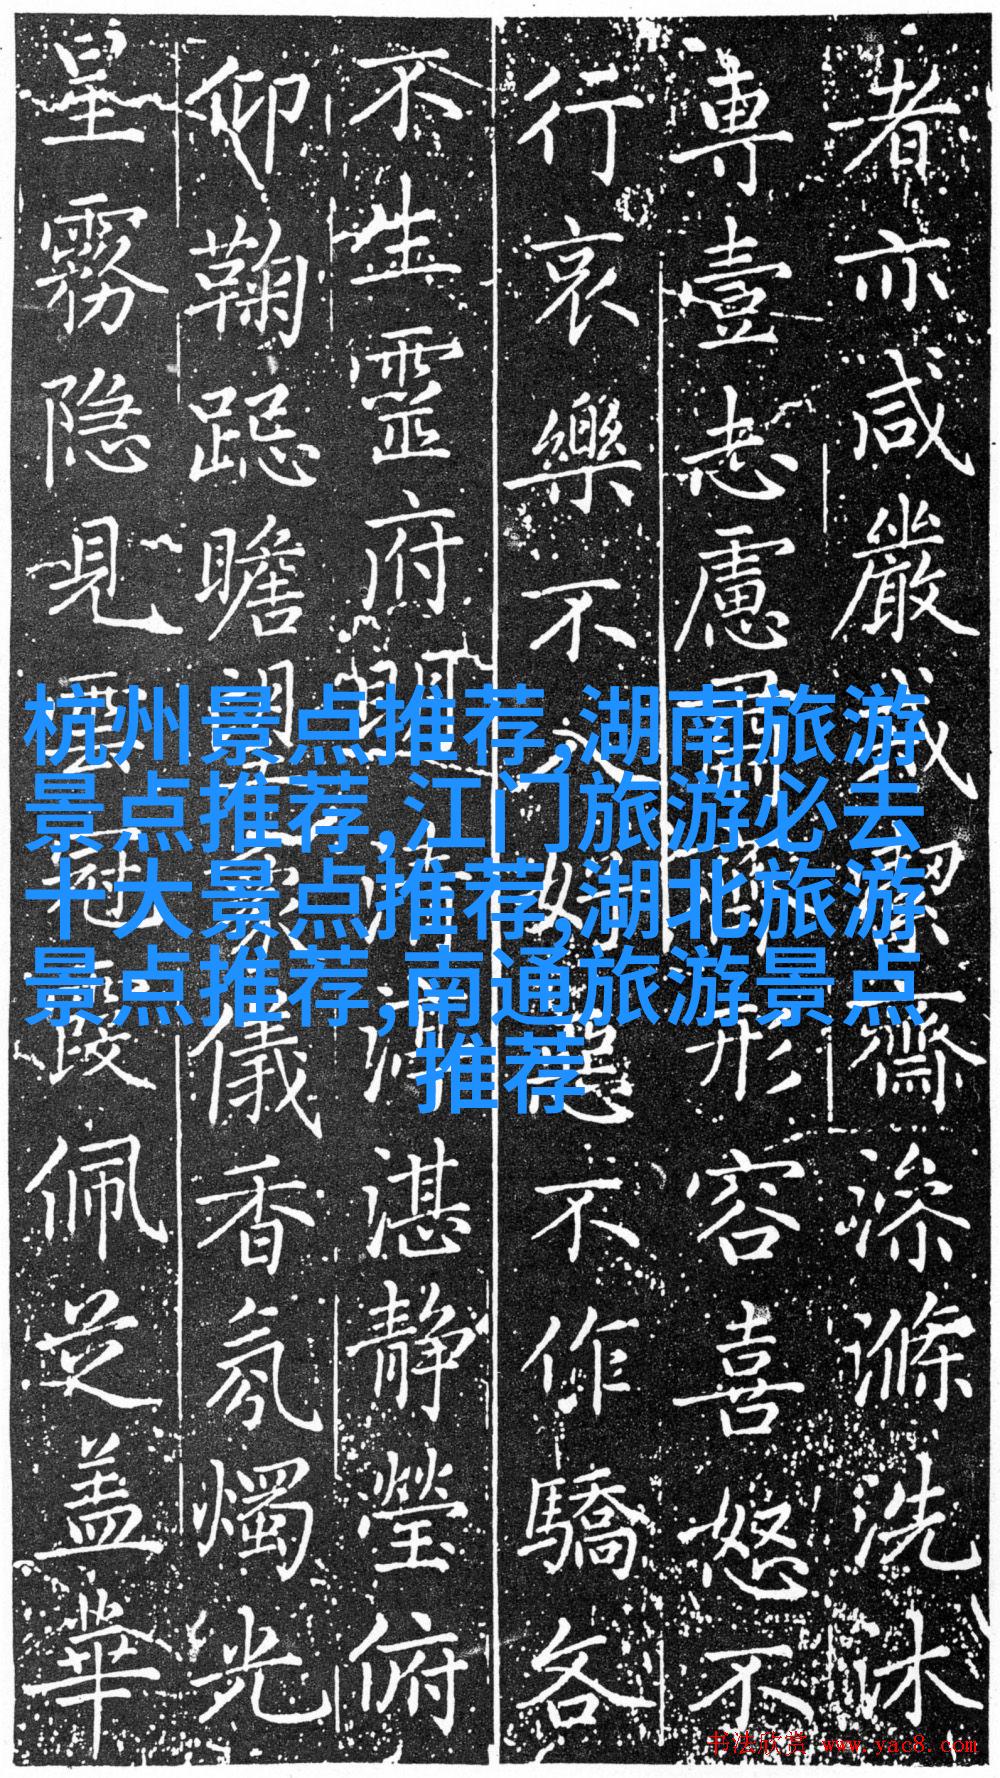 者亦咸嚴
齋滌洗沐
專壹志慮
形容喜怒不
行哀樂不
不作驕各
不生靈府
湛静瑩俯
仰鞠跽瞻
儀香氛燭光
星霧隐見
佩芝盖華
杭州景点推荐,湖南旅游
景点推荐,江门旅游必去
十大景点推荐,湖北旅游
景点推荐,南通旅游景点
推荐
书法欣赏 www.yac8.com